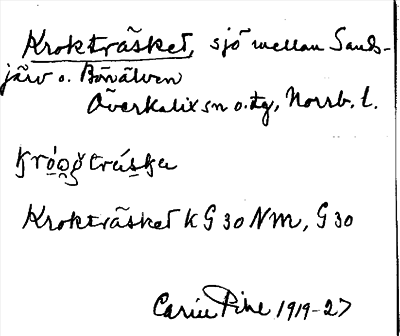 Krokträsket, sjö mellan Sands-
järv o. Bönälven
Överkalix sn o. tg, Norrb. l.
Krokträsket KG 30 NM, G 30
Carin Pihl 1919-27